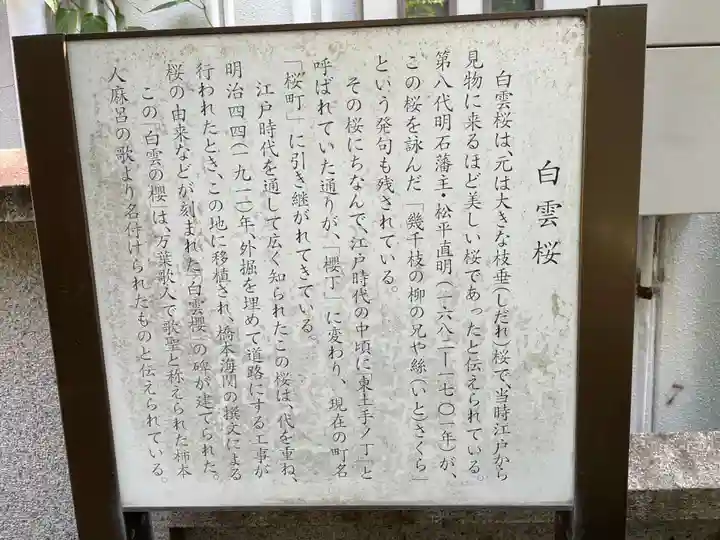 白雲桜
白雲桜は、元は大きな枝垂(しだれ)桜で、当時江戸から
見物に来るほど美しい桜であったと伝えられている。
第八代明石藩主・松平直明(一六八二―一七〇一年)が、
この桜を詠んだ「幾千枝の柳の兄や絲(いとさくら」
という発句も残されている。
その桜にちなんで、江戸時代の中頃に東土手ノ丁」と
呼ばれていた通りが、「櫻丁」に変わり、現在の町名
「桜町」に引き継がれてきている。
江戸時代を通して広く知られたこの桜は、代を重ね、
明治四四(一九一一)年、外掘を埋めて道路にする工事が
行われたとき、この地に移植され、橋本海関の撰文による
桜の由来などが刻まれた「白雲櫻」の碑が建てられた。
この「白雲の櫻」は、万葉歌人で歌聖と称えられた柿本
人麻呂の歌より名付けられたものと伝えられている。